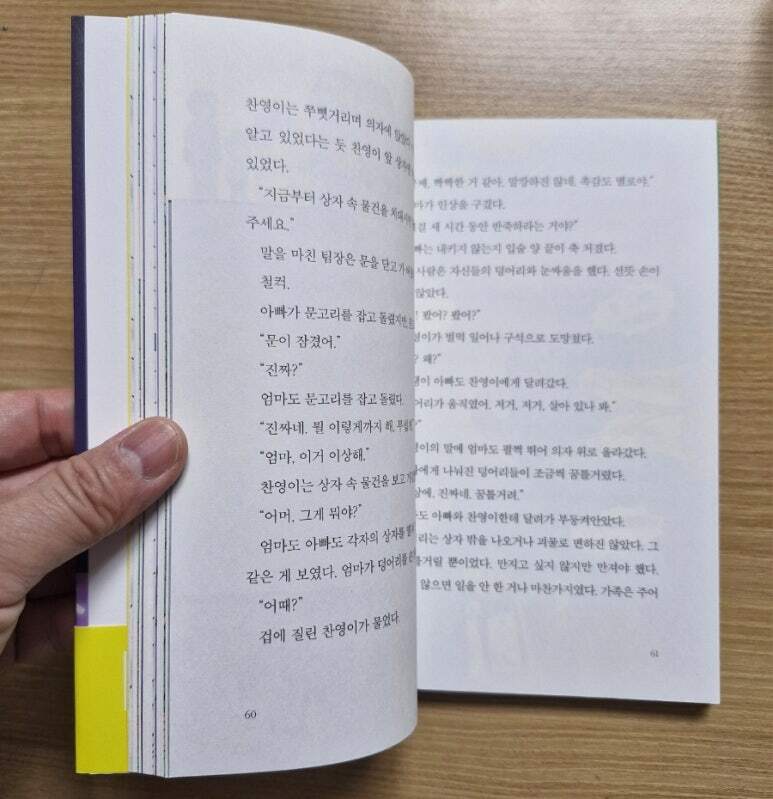 찬영이는 쭈뼛거리며 의자에
알고 있었다는 듯 찬영이 앞 상자에
있었다.
“지금부터 상자 속 물건을
주세요.”
말을 마친 팀장은 문을 닫고
철컥.
아빠가 문고리를 잡고 돌렸지만,
“문이 잠겼어.”
“진짜?”
엄마도 문고리를 잡고 돌렸다.
“진짜네. 뭘 이렇게까지 해,
“엄마, 이거 이상해.”
찬영이는 상자 속 물건을 보고
“어머, 그게 뭐야?”
엄마도 아빠도 각자의 상자를
같은 게 보였다. 엄마가 덩어리를
“어때?”
겁에 질린 찬영이가 물었다.
60
빡빡한 거 같아. 말랑하진 않네. 촉감도 별로야.”
인상을 구겼다.
세 시간 동안 반죽하라는 거야?”
내키지 않는지 입술 양 끝이 축 처졌다.
사람은 자신들의 덩어리와 눈싸움을 했다. 선뜻 손이
않았다.
봤어? 봤어?”
벌떡 일어나 구석으로 도망쳤다.
왜?”
아빠도 찬영이에게 달려갔다.
움직였어. 저거, 저거, 살아 있나 봐.”
말에 엄마도 펄쩍 뛰어 의자 위로 올라갔다.
나눠진 덩어리들이 조금씩 꿈틀거렸다.
진짜네. 꿈틀거려.”
아빠와 찬영이한테 달려가 부둥켜안았다.
상자 밖을 나오거나 괴물로 변하진 않았다. 그
뿐이었다. 만지고 싶지 않지만 만져야 했다.
않으면 일을 안 한 거나 마찬가지였다. 가족은 주어
61